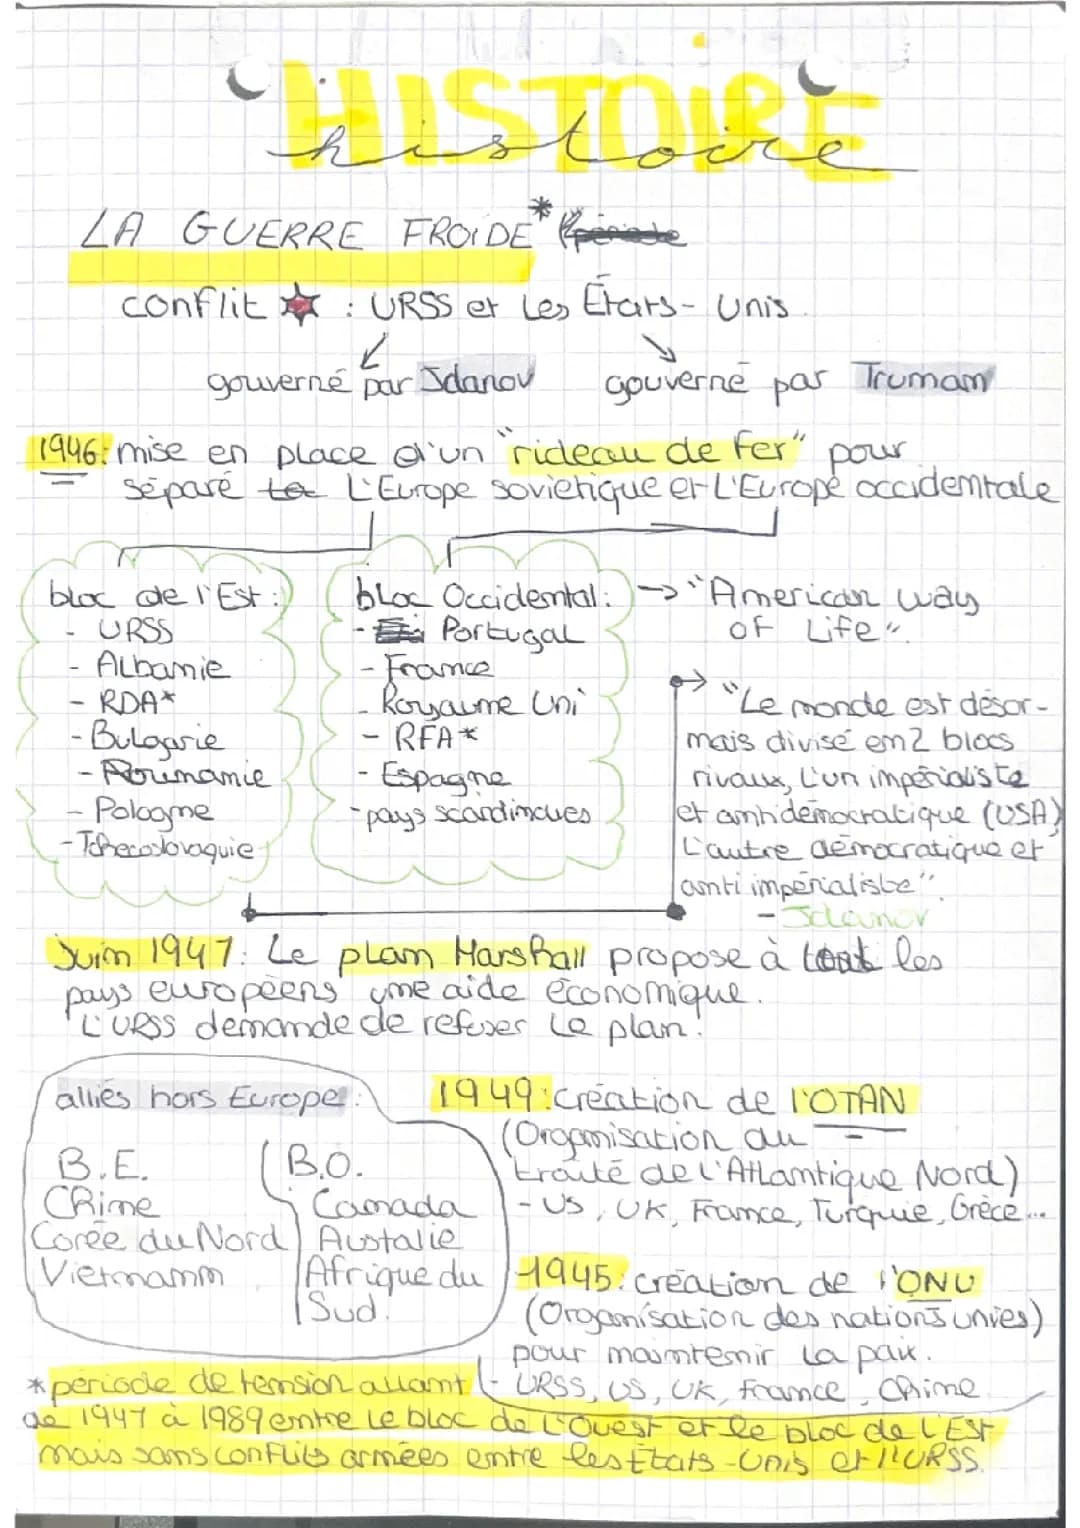 HISTOIRE
histoire
LA GUERRE FROIDE*
conflit : URSS et Les États-Unis
gouverné par Jdanov
gouverné par Trumam
1946: mise en place d'un "rideau de Fer" pour
séparé L'Europe soviétique et L'Europe occidentale
bloc de l'Est :
- URSS
- Albanie
- RDA*
- Bulgarie
- Roumanie
- Pologne
- Tchecoslovaquie
bloc Occidental:
- Portugal
- France
- Royaume Uni
- RFA*
- Espagne
- pays scandinaves
→ "American way
of Life".
→ "Le monde est désor-
mais divisé en 2 blocs
rivaux, L'un impérialiste
et antidémocratique (USA)
L'autre démocratique et
anti impérialiste".
- Jdanov
Juin 1947: Le plan Marshall propose à tout les
pays européens une aide économique.
L'URSS demande de refuser le plan.
alliés hors Europe :
B.E.
Chine
Corée du Nord
Vietnamm
B.O.
Canada
Austalie
Afrique du
Sud.
1949: création de l'OTAN
(Organisation du
traité de l'Atlantique Nord)
- US, UK, France, Turquie, Grèce...
1945: création de l'ONU
(Organisation des nations unies)
pour maintenir la paix.
- URSS, US, UK, France, Chine
* période de tension allant
de 1947 à 1989 entre le bloc de L'Ouest et le bloc de L'Est
mais sans conflits armées entre les États-Unis et l'URSS.